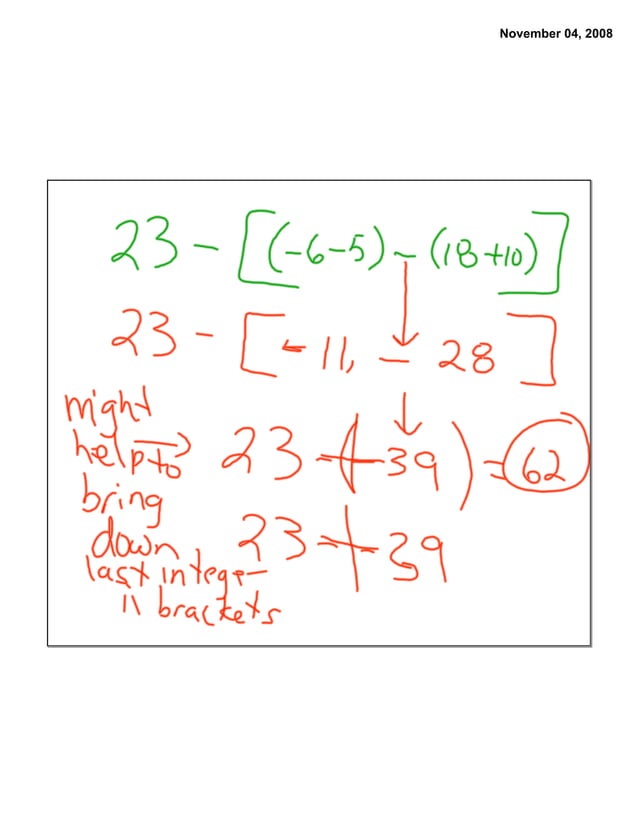 November 04, 2008
23 - [(-6-5) - (18+10)]
23 - [-11, - 28]
might
help to 23 - (-39) = 62
bring
down 23 + 39
last integer
11 brackets